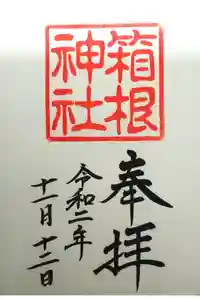 箱根
神社
奉拝
令和二年
十一月十二日